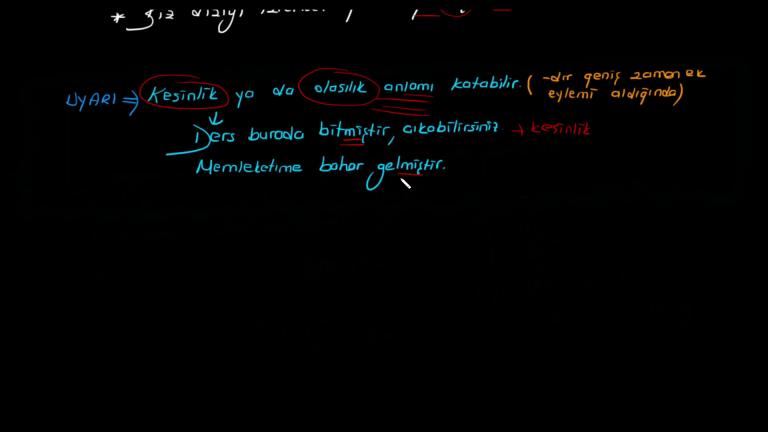 * Siz diziyi
UYARI ⇒ Kesinlik ya da olasılık anlamı katabilir. (-dır geniş zaman ek eylemi aldığında)
Ders burada bitmiştir, çıkabilirsiniz → kesinlik
Memleketime bahar gelmiştir.